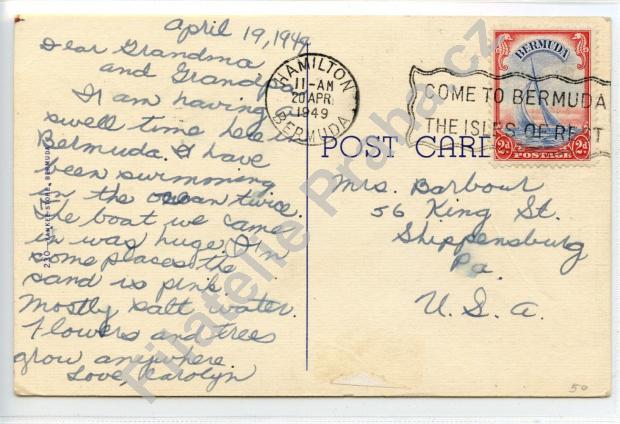 April 19, 1949
Dear Grandma
and Grandpa
I am having
swell time here
Bermuda. I have
been swimming
in the ocean twice.
The boat we came
in was huge. In
some places the
sand is pink.
Mostly salt water.
Flowers and trees
grow anywhere.
Love, Carolyn
230 - YANKEE STORE, BERMUDA
HAMILTON
11-AM
20 APR
1949
BERMUDA
COME TO BERMUDA
THE ISLES OF REST
BERMUDA
2d POSTAGE 2d
POST CARD
Mrs. Barbour
56 King St.
Shippensburg
Pa.
U.S.A.
50
Filatelie Praha cz